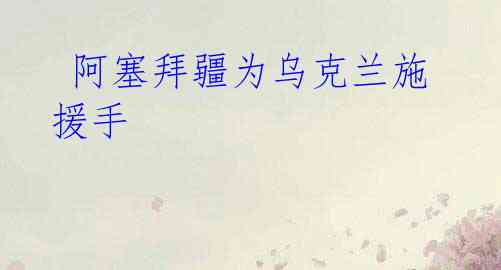 阿塞拜疆为乌克兰施
援手